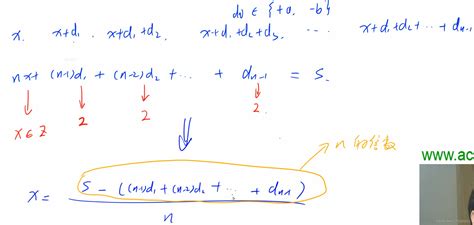 di ∈ {+a, -b}
x. x+d1. x+d1+d2. x+d1+d2+d3. ... x+d1+d2+...+dn-1
nx+ (n-1)d1 + (n-2)d2 +... + dn-1 = S.
x∈Z 2 2 2.
n的倍数
x = S - ((n-1)d1+(n-2)d2 + ... + dn-1)
n
www.ac